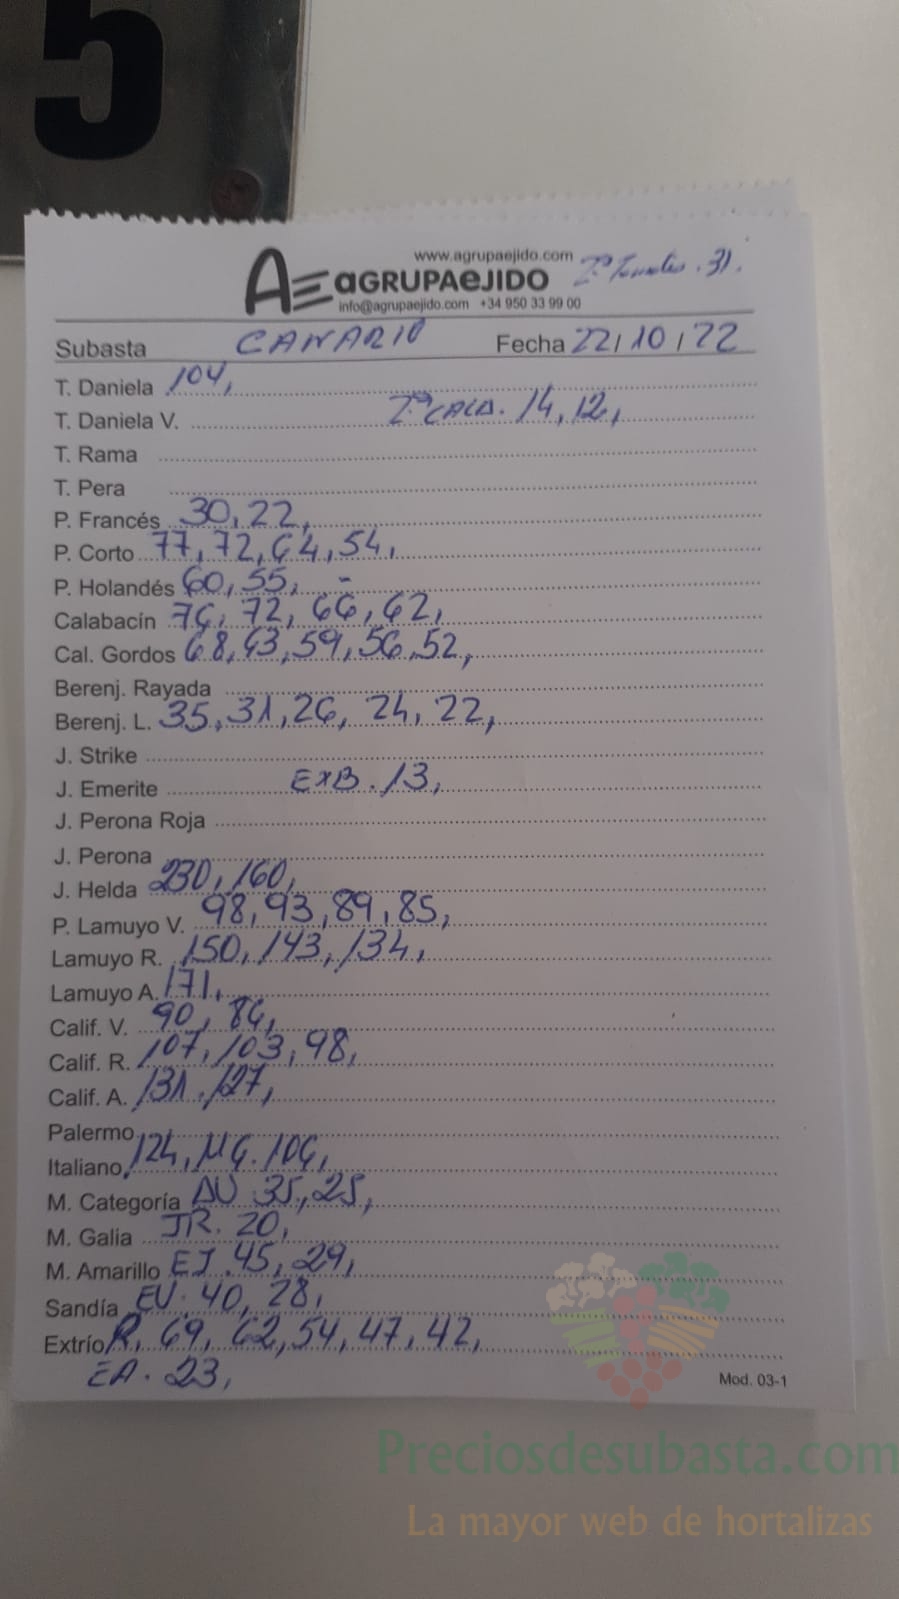 5
www.agrupaejido.com
AGRUPAEJIDO 2ª Tomates. 31.
info@agrupaejido.com +34 950 33 99 00
Subasta CANARIO Fecha 22/10/22
T. Daniela 104,
T. Daniela V. 2ª CALA. 14, 12,
T. Rama
T. Pera
P. Francés 30, 22,
P. Corto 77, 72, 64, 54,
P. Holandés 60, 55, -
Calabacín 76, 72, 66, 62,
Cal. Gordos 68, 63, 59, 56, 52,
Berenj. Rayada
Berenj. L. 35, 31, 26, 24, 22,
J. Strike
J. Emerite EXB. 13,
J. Perona Roja
J. Perona
J. Helda 230, 160,
P. Lamuyo V. 98, 93, 89, 85,
Lamuyo R. 150, 143, 134,
Lamuyo A. 171,
Calif. V. 90, 86,
Calif. R. 107, 103, 98,
Calif. A. 131, 127,
Palermo
Italiano 124, 116. 106,
M. Categoría AU 35, 25,
M. Galia JR. 20,
M. Amarillo EJ. 45, 29,
Sandía EV. 40, 28,
Extrío R, 69, 62, 54, 47, 42,
EA. 23,
Mod. 03-1
Preciosdesubasta.com
La mayor web de hortalizas